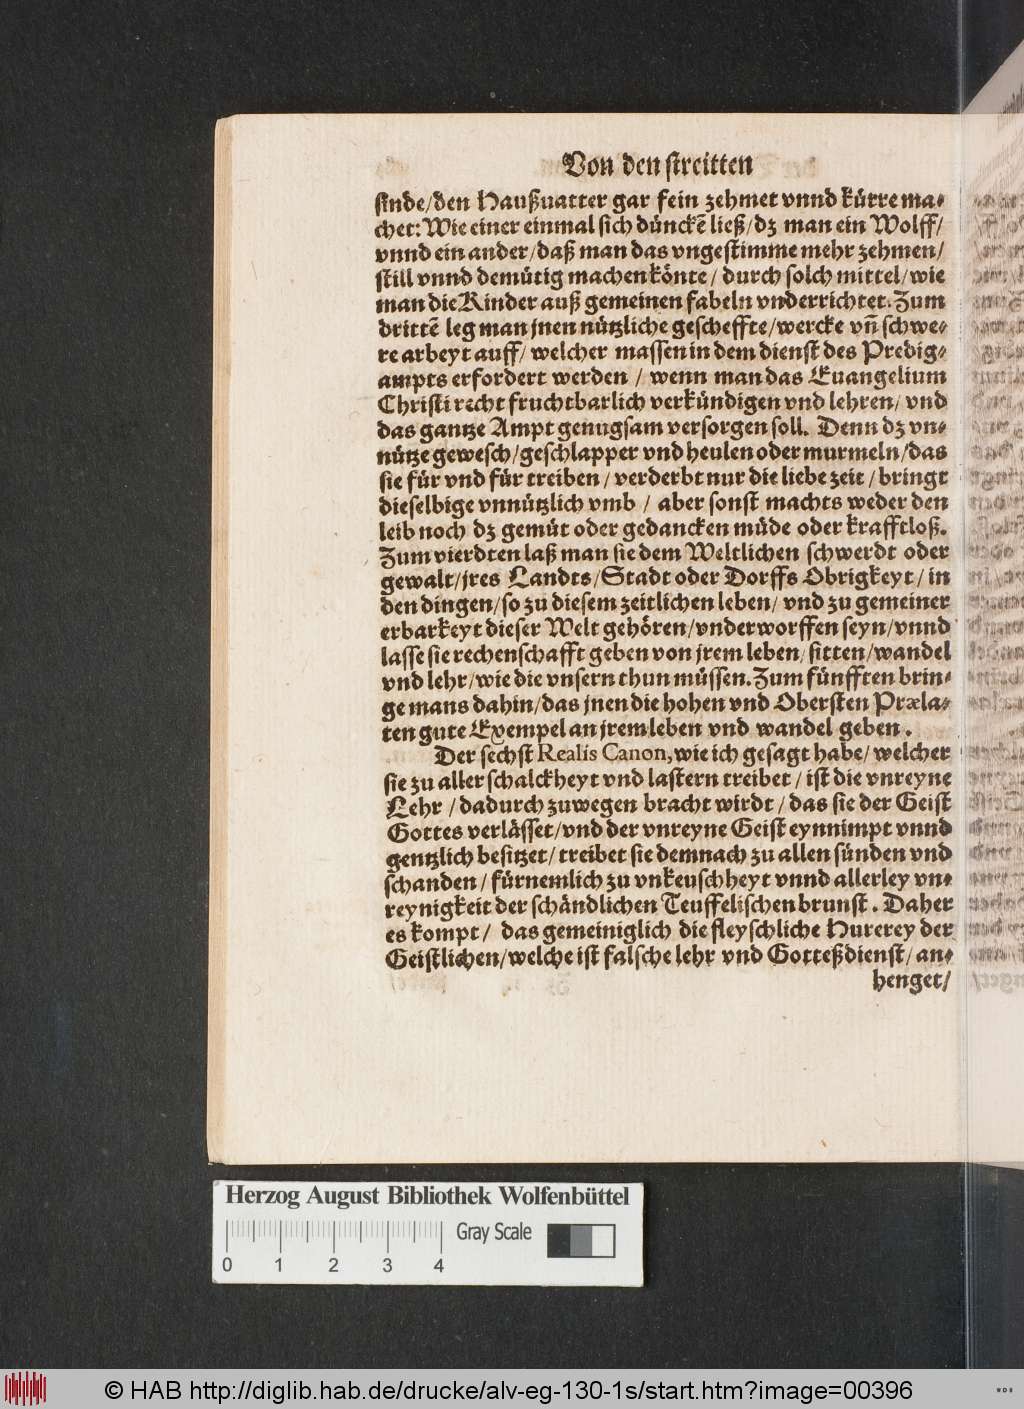 Von den streitten
sinde/den Haußuatter gar fein zehmet vnnd kürre ma-
chet: Wie einer einmal sich dünckē ließ/dz man ein Wolff/
vnnd ein ander/daß man das vngestimme mehr zehmen/
still vnnd demütig machen könte/ durch solch mittel/wie
man die Kinder auß gemeinen fabeln vnderrichtet. Zum
drittē leg man jnen nützliche gescheffte/wercke vn̄ schwe-
re arbeyt auff/ welcher massen in dem dienst des Predig-
ampts erfordert werden / wenn man das Euangelium
Christi recht fruchtbarlich verkündigen vnd lehren/ vnd
das gantze Ampt genugsam versorgen soll. Denn dz vn-
nütze gewesch/geschlapper vnd heulen oder murmeln/das
sie für vnd für treiben / verderbt nur die liebe zeit / bringt
dieselbige vnnützlich vmb / aber sonst machts weder den
leib noch dz gemüt oder gedancken müde oder krafftloß.
Zum vierdten laß man sie dem Weltlichen schwerdt oder
gewalt/jres Landts/Stadt oder Dorffs Obrigkeyt / in
den dingen/so zu diesem zeitlichen leben/ vnd zu gemeiner
erbarkeyt dieser Welt gehören/vnderworffen seyn/vnnd
lasse sie rechenschafft geben von jrem leben/ sitten/wandel
vnd lehr/wie die vnsern thun müssen. Zum fünfften brin-
ge mans dahin/das jnen die hohen vnd Obersten Præla-
ten gute Exempel an jrem leben vnd wandel geben.
Der sechst Realis Canon, wie ich gesagt habe/ welcher
sie zu aller schalckheyt vnd lastern treibet / ist die vnreyne
Lehr / dadurch zuwegen bracht wirdt / das sie der Geist
Gottes verlässet/vnd der vnreyne Geist eynnimpt vnnd
gentzlich besitzet/ treibet sie demnach zu allen sünden vnd
schanden / fürnemlich zu vnkeuschheyt vnnd allerley vn-
reynigkeit der schändlichen Teuffelischen brunst. Daher
es kompt/ das gemeiniglich die fleyschliche Hurerey der
Geistlichen/welche ist falsche lehr vnd Gotteßdienst/ an-
henget/
Herzog August Bibliothek Wolfenbüttel
Gray Scale
0 1 2 3 4
© HAB http://diglib.hab.de/drucke/alv-eg-130-1s/start.htm?image=00396